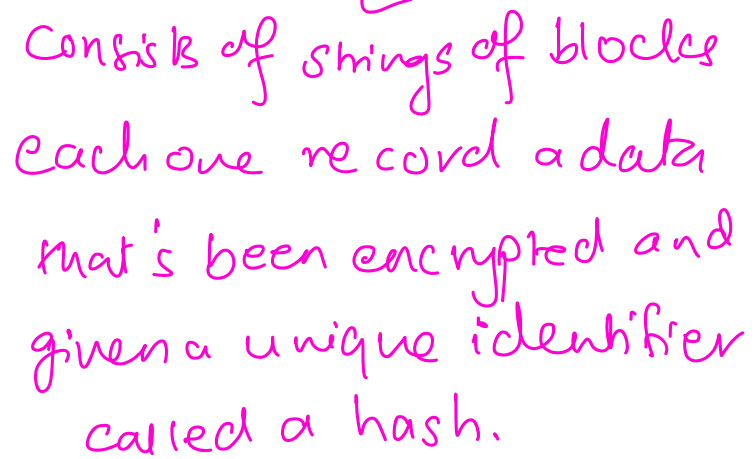 Consists of strings of blocks
each one record a data
that's been encrypted and
given a unique identifier
called a hash.